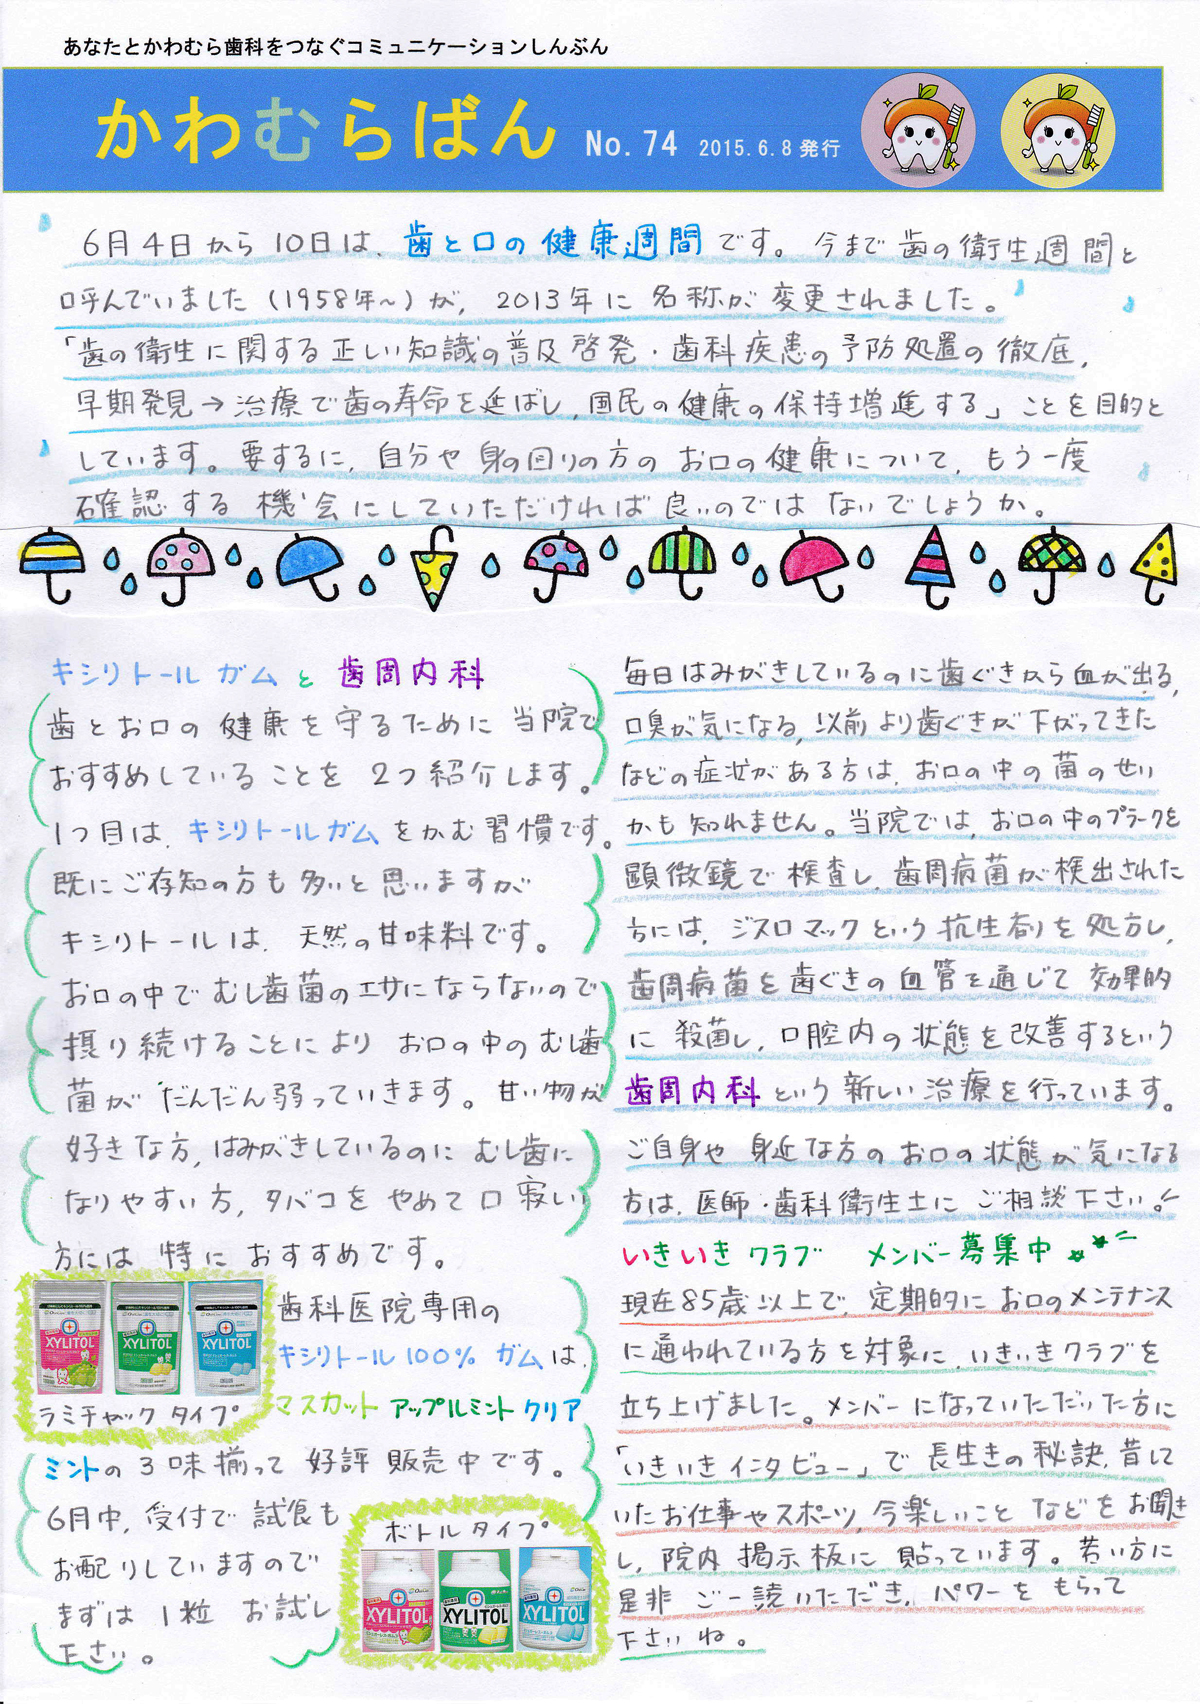 あなたとかわむら歯科をつなぐコミュニケーションしんぶん
かわむらばん No.74 2015.6.8発行
6月4日から10日は、歯と口の健康週間です。今まで歯の衛生週間と
呼んでいました(1958年～)が、2013年に名称が変更されました。
「歯の衛生に関する正しい知識の普及啓発・歯科疾患の予防処置の徹底,
早期発見→治療で歯の寿命を延ばし、国民の健康の保持増進する」ことを目的と
しています。要するに、自分や身の回りの方のお口の健康について、もう一度
確認する機会にしていただければ良いのではないでしょうか。
キシリトールガムと歯周内科
歯とお口の健康を守るために当院で
おすすめしていることを2つ紹介します。
1つ目は、キシリトールガムをかむ習慣です。
既にご存知の方も多いと思いますが
キシリトールは、天然の甘味料です。
お口の中でむし歯菌のエサにならないので
摂り続けることによりお口の中のむし歯
菌がだんだん弱っていきます。甘い物が
好きな方、はみがきしているのにむし歯に
なりやすい方、タバコをやめて口寂しい
方には特におすすめです。
歯科医院専用の
キシリトール100%ガムは、
マスカット アップルミント クリア
XYLITOL
XYLITOL
XYLITOL
ラミチャックタイプ
ミントの3味揃って好評販売中です。
6月中、受付で試食も
お配りしていますので
まずは1粒お試し
下さい。
ボトルタイプ
XYLITOL
XYLITOL
XYLITOL
毎日はみがきしているのに歯ぐきから血が出る,
口臭が気になる、以前より歯ぐきが下がってきた
などの症状がある方は、お口の中の菌のせい
かも知れません。当院では、お口の中のプラークを
顕微鏡で検査し、歯周病菌が検出された
方には、ジスロマックという抗生剤を処方し、
歯周病菌を歯ぐきの血管を通じて効果的
に殺菌し、口腔内の状態を改善するという
歯周内科という新しい治療を行っています。
ご自身や身近な方のお口の状態が気になる
方は、医師・歯科衛生士にご相談下さい。
いきいきクラブ メンバー募集中
現在85歳以上で、定期的にお口のメンテナンス
に通われている方を対象に、いきいきクラブを
立ち上げました。メンバーになっていただいた方に
「いきいきインタビュー」で長生きの秘訣、昔して
いたお仕事やスポーツ、今楽しいことなどをお聞き
し、院内掲示板に貼っています。若い方に
是非ご一読いただき、パワーをもらって
下さいね。